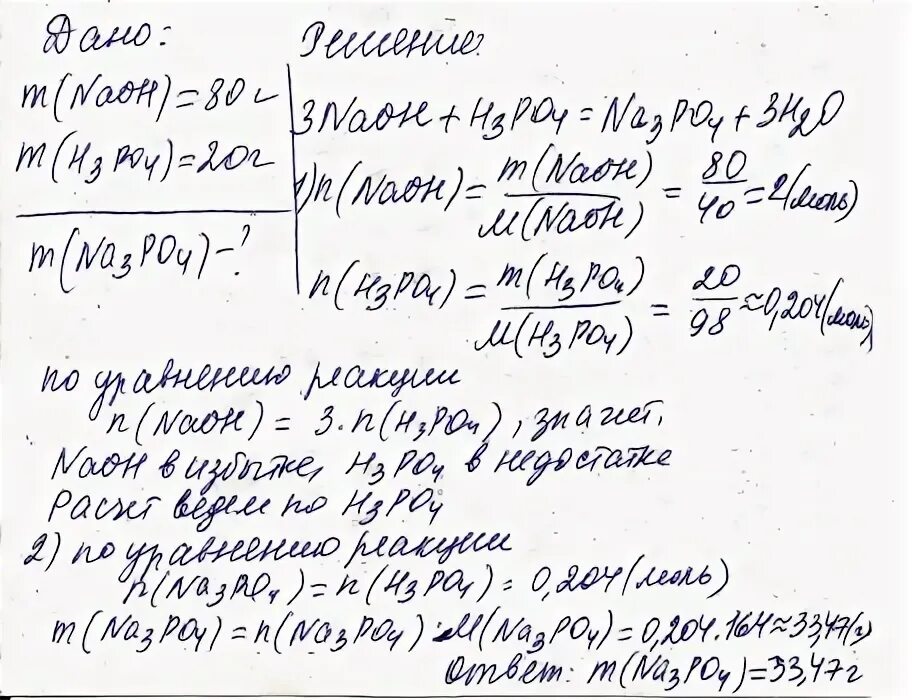 Дано:
m(NaOH)=80г
m(H₃PO₄)=20г
m(Na₃PO₄)-?
Решение:
3NaOH+H₃PO₄=Na₃PO₄+3H₂O
1)n(NaOH)=m(NaOH)/M(NaOH)=80/40=2(моль)
n(H₃PO₄)=m(H₃PO₄)/M(H₃PO₄)=20/98≈0,204(моль)
по уравнению реакции
n(NaOH)=3·n(H₃PO₄), значит,
NaOH в избытке, H₃PO₄ в недостатке
Расчет ведем по H₃PO₄
2) по уравнению реакции
n(Na₃PO₄)=n(H₃PO₄)=0,204(моль)
m(Na₃PO₄)=n(Na₃PO₄)·M(Na₃PO₄)=0,204·164≈33,47(г)
Ответ: m(Na₃PO₄)=33,47г